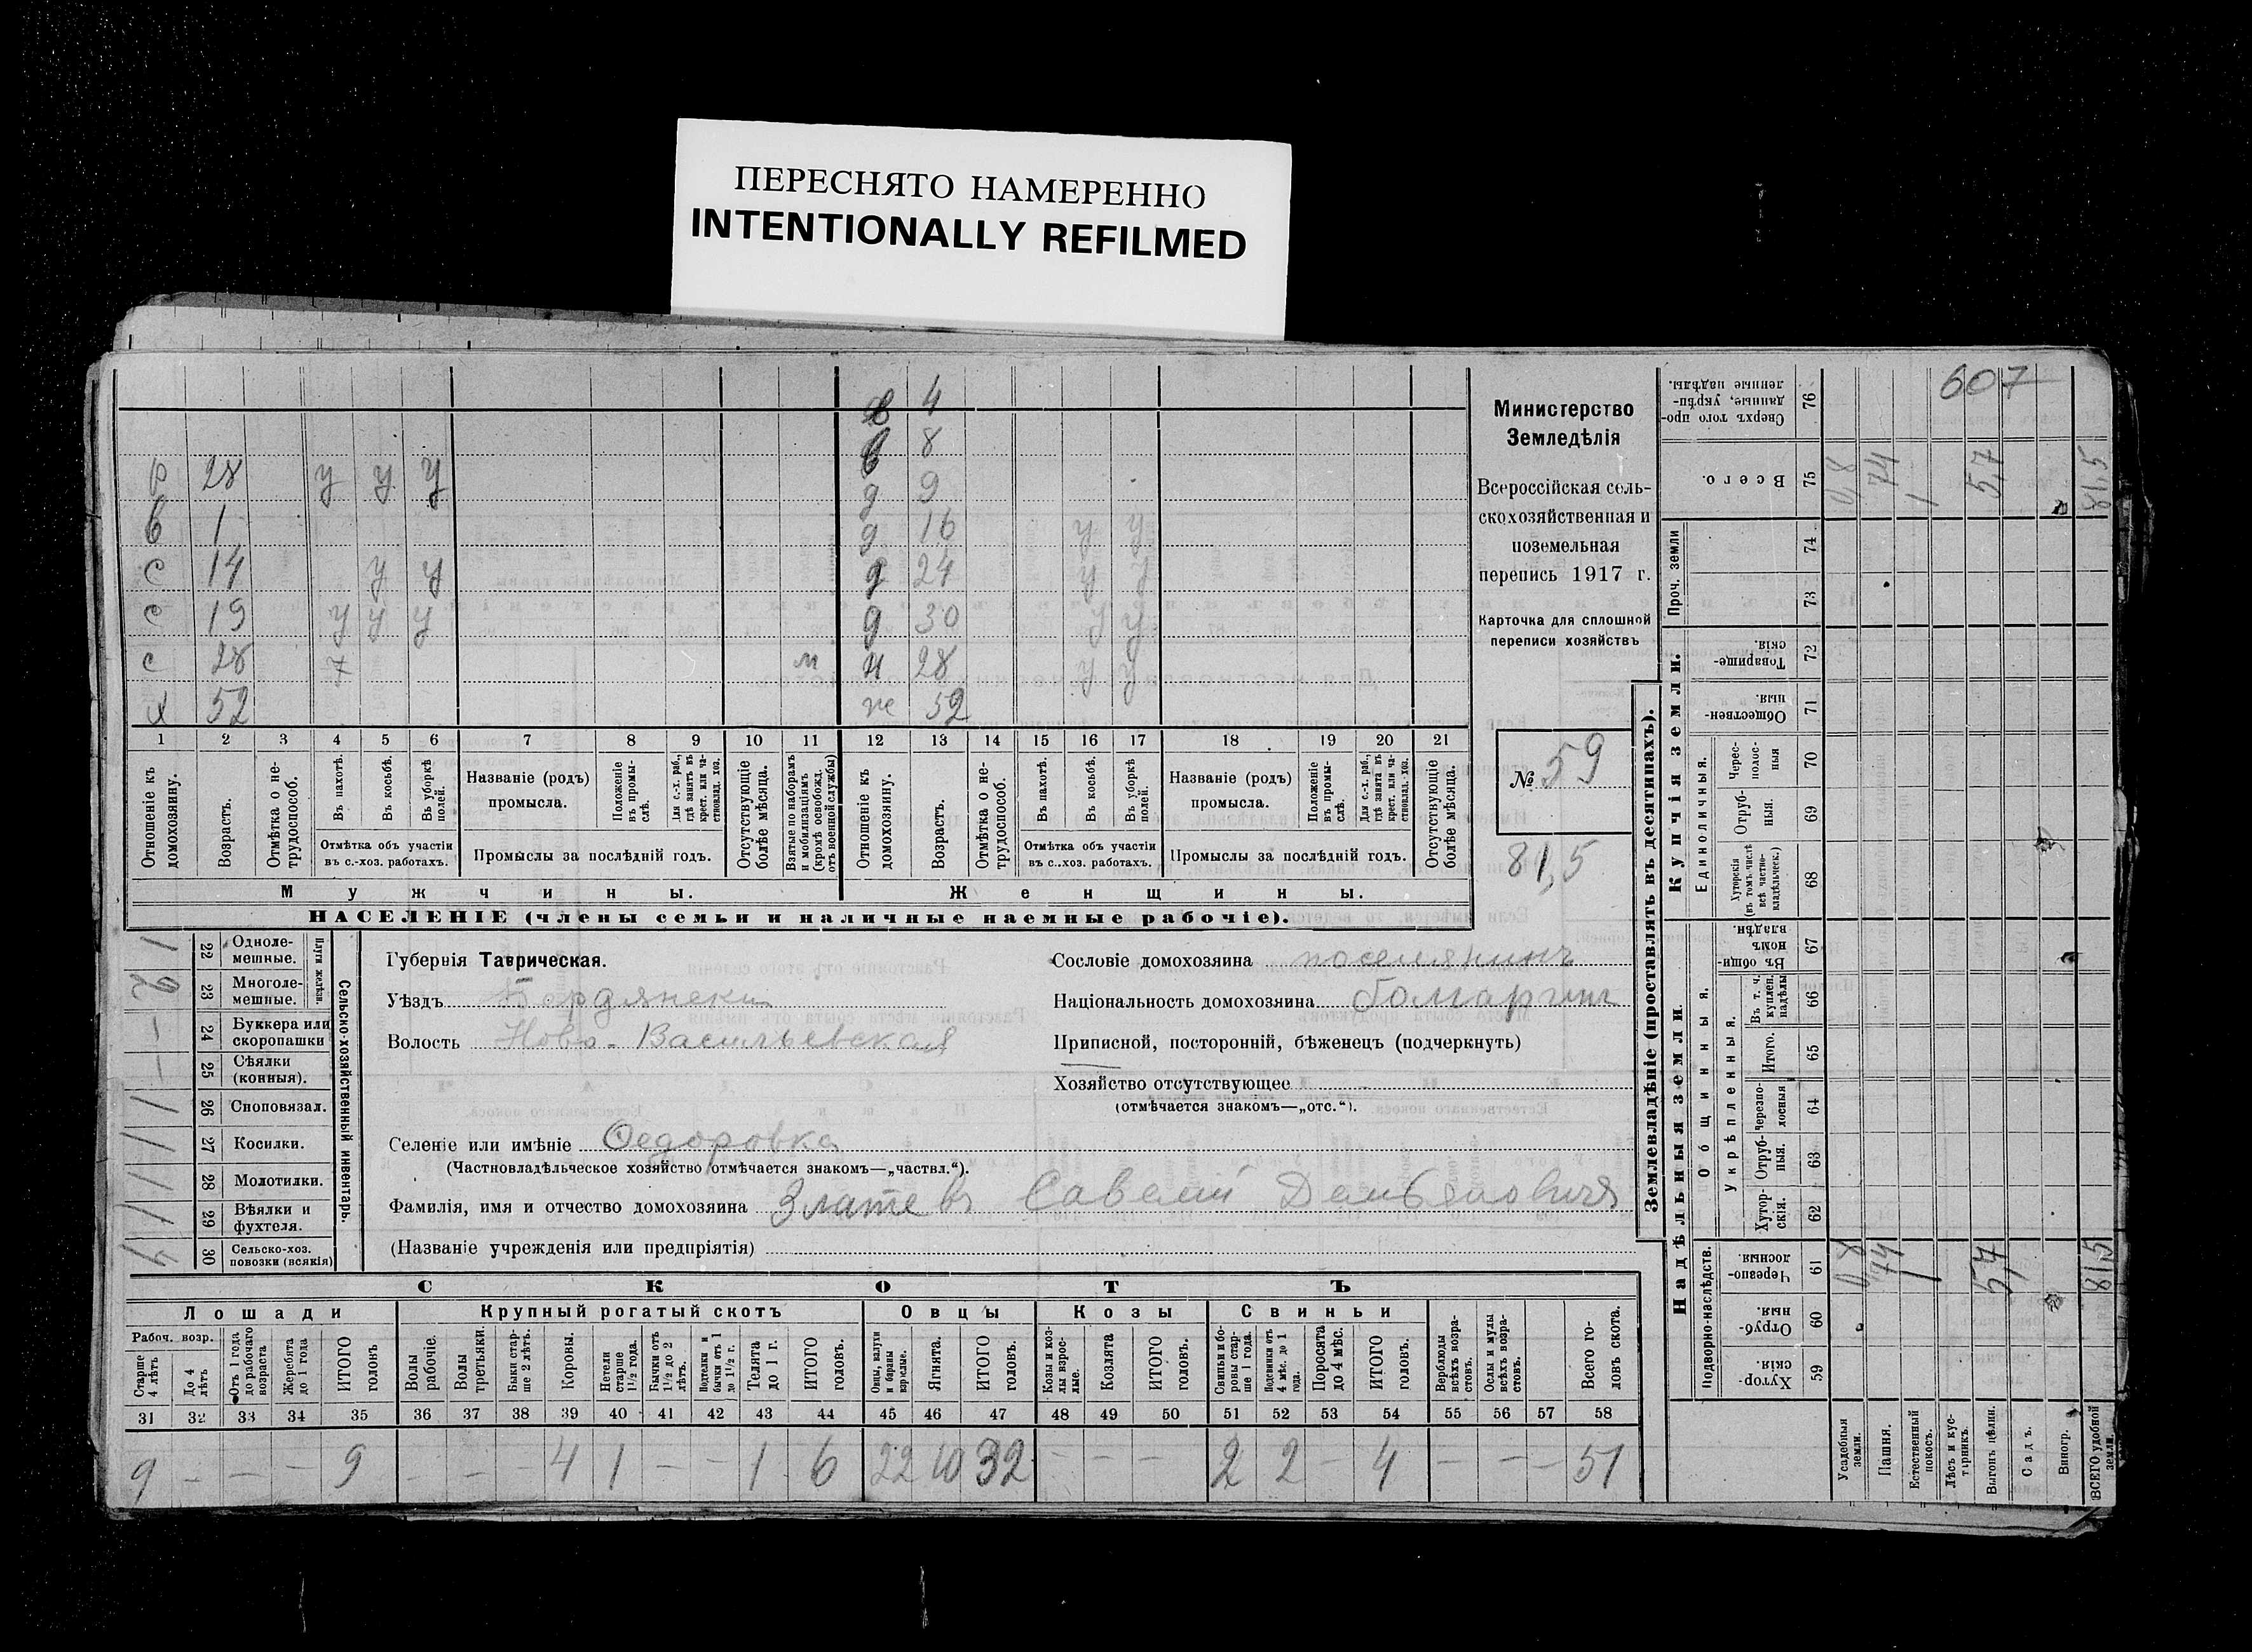 ПЕРЕСНЯТО НАМЕРЕННО
INTENTIONALLY REFILMED
607
Министерство
Земледѣлія
Всероссійская сель-
скохозяйственная и
поземельная
перепись 1917 г.
Карточка для сплошной
переписи хозяйствъ
№ 59
81,5
4
в 8
р 28 у у у д 9
в 1 д 16 у у
с 14 у у д 24 у у
с 19 у у у д 30 у у
с 28 м н 28 у у
х 52 ж 52
1 2 3 4 5 6 7 8 9 10 11 12 13 14 15 16 17 18 19 20 21
Отношеніе къ домохозяину.
Возрастъ.
Отмѣтка о не-трудоспособ.
Въ пахотѣ.
Въ косьбѣ.
Въ уборкѣ полей.
Отмѣтка объ участіи въ с.-хоз. работахъ.
Названіе (родъ) промысла.
Положеніе въ промы-слѣ.
Для с.-х. раб., гдѣ занятъ въ крест. или ча-стновлад. хоз.
Промыслы за послѣдній годъ.
Отсутствующіе болѣе мѣсяца.
Взятые по наборамъ и мобилизаціямъ (кромѣ освобожд. отъ военной службы)
Отношеніе къ домохозяину.
Возрастъ.
Отмѣтка о не-трудоспособ.
Въ пахотѣ.
Въ косьбѣ.
Въ уборкѣ полей.
Отмѣтка объ участіи въ с..хоз. работахъ.
Названіе (родъ) промысла.
Положеніе въ промы-слѣ.
Для с.-х. раб., гдѣ занята въ крест. или ча-стновлад. хоз.
Промыслы за послѣдній годъ.
Отсутствующіе болѣе мѣсяца.
Мужчины. Женщины.
НАСЕЛЕНІЕ (члены семьи и наличные наемные рабочіе).
1 22 Одноле-мешные.
2 23 Многоле-мешные.
Плуги желѣзн.
– 24 Буккера или скоропашки
– 25 Сѣялки (конныя).
1 26 Сноповязал.
1 27 Косилки.
1 28 Молотилки.
1 29 Вѣялки и фухтеля.
4 30 Сельско-хоз. повозки (всякія)
Сельско-хозяйственный инвентарь.
Губернія Таврическая.
Уѣздъ Бердянски
Волость Ново-Васильевская
Сословіе домохозяина поселянинъ
Національность домохозяина болгарин
Приписной, посторонній, бѣженецъ (подчеркнуть)
Хозяйство отсутствующее
(отмѣчается знакомъ—„отс.“).
Селеніе или имѣніе Федоровка
(Частновладѣльческое хозяйство отмѣчается знакомъ—„частвл.“).
Фамилія, имя и отчество домохозяина Златевъ Савелій Демьяновичъ
(Названіе учрежденія или предпріятія)
СКОТЪ
Лошади Крупный рогатый скотъ Овцы Козы Свиньи
Рабоч. возр.
Старше 4 лѣтъ
До 4 лѣтъ
Отъ 1 года до рабочаго возраста
Жеребята до 1 года
ИТОГО головъ
Волы рабочіе.
Волы третьяки.
Быки стар-ше 2 лѣтъ.
Коровы.
Нетели старше 1½ года.
Бычки отъ 1½ до 2 лѣтъ.
Подтелки и бычки отъ 1 до 1½ г.
Телята до 1 г.
ИТОГО головъ.
Овцы, валухи и бараны взрослые.
Ягнята.
ИТОГО головъ.
Козы и коз-лы взрос-лые.
Козлята
ИТОГО головъ.
Свиньи и бо-ровы стар-ше 1 года.
Подсвинки отъ 4 мѣс. до 1 года.
Поросята до 4 мѣс.
ИТОГО головъ.
Верблюды всѣхъ возра-стовъ.
Ослы и мулы всѣхъ возра-стовъ.
Всего го-ловъ скота.
31 32 33 34 35 36 37 38 39 40 41 42 43 44 45 46 47 48 49 50 51 52 53 54 55 56 57 58
9 – – – 9 – – – 4 1 – – 1 6 22 10 32 – – – 2 2 – 4 – – – 51
Землевладѣніе (проставлять въ десятинахъ).
Купчія земли.
Надѣльныя земли.
Сверхъ того про-данные, укрѣп-ленные надѣлы. 76
Всего. 75 0,8 74 1 5,7 81,5
Проч. земли 74 73
Товарище-скія. 72
Обществен-ныя. 71
Единоличныя.
Черес-полос-ныя 70
Отруб-ныя. 69
Хуторскія (въ томъ числѣ всѣ частно-владѣльческ.) 68
Общинныя.
Въ общин-номъ владѣн. 67
Укрѣпленныя.
Въ т. ч. куплен. надѣлы 66
Итого. 65
Черезпо-лосныя 64
Отруб-ныя. 63
Хутор-скія. 62
Подворно-наслѣдств.
Черезпо-лосныя. 61 0,8 74 1 5,7 81,5
Отруб-ныя. 60
Хутор-скія. 59
Усадебныя земли.
Пашня.
Естественный покосъ.
Лѣсъ и кус-тарникъ.
Выгонъ цѣлин.
Садъ.
Виногр.
ВСЕГО удобной земли.